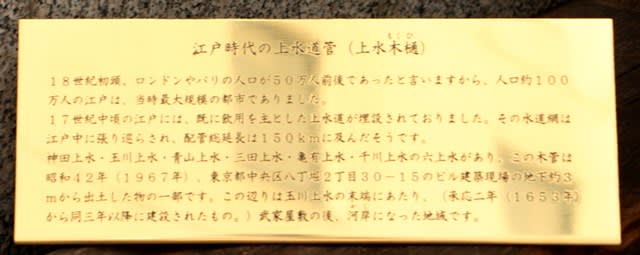 江戸時代の上水道管（上水木樋）
もくひ
１８世紀初頭、ロンドンやパリの人口が５０万人前後であったと言いますから、人口約１００
万人の江戸は、当時最大規模の都市でありました。
１７世紀中頃の江戸には、既に飲用を主とした上水道が埋設されておりました。その水道網は
江戸中に張り巡らされ、配管総延長は１５０ｋｍに及んだそうです。
神田上水・玉川上水・青山上水・三田上水・亀有上水・千川上水の六上水があり、この木管は
昭和４２年（１９６７年）、東京都中央区八丁堀２丁目３０－１５のビル建築現場の地下約３
ｍから出土した物の一部です。この辺りは玉川上水の末端にあたり、（承応二年（１６５３年）
から同三年以降に建設されたもの。）武家屋敷の後、河岸になった地域です。